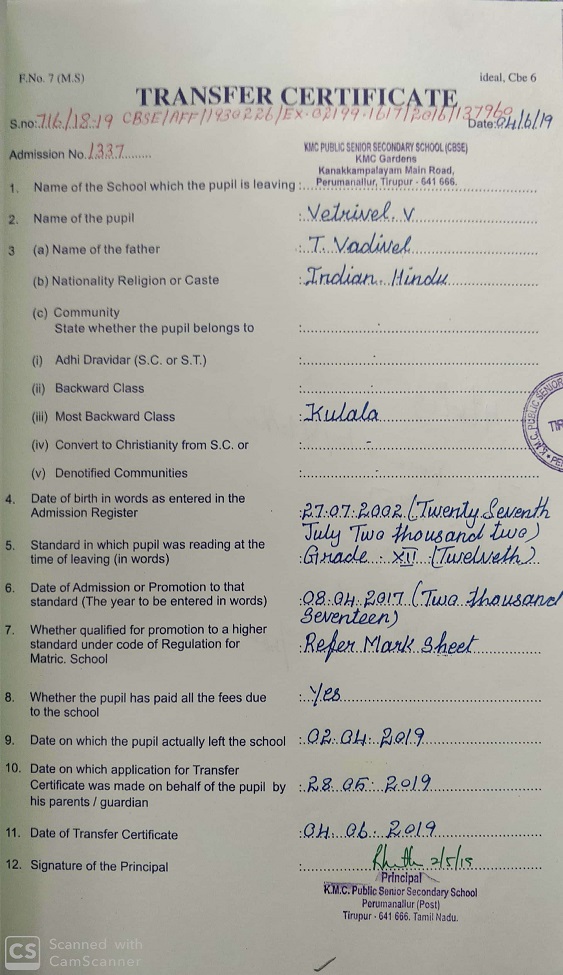 F.No. 7 (M.S)
ideal, Cbe 6
TRANSFER CERTIFICATE
S.no: 716/18-19 CBSE/AFF/1930226/Ex-02199-1617/2016/137960
Date: 04/6/19
Admission No. 1337
KMC PUBLIC SENIOR SECONDARY SCHOOL (CBSE)
KMC Gardens
Kanakkampalayam Main Road,
Perumanallur, Tirupur - 641 666.
1. Name of the School which the pupil is leaving :
2. Name of the pupil : Vetrivel. V
3 (a) Name of the father : T. Vadivel
(b) Nationality Religion or Caste : Indian. Hindu
(c) Community
State whether the pupil belongs to :
(i) Adhi Dravidar (S.C. or S.T.) : -
(ii) Backward Class : -
(iii) Most Backward Class : Kulala
(iv) Convert to Christianity from S.C. or : -
(v) Denotified Communities : -
4. Date of birth in words as entered in the
Admission Register : 27.07.2002 (Twenty Seventh
July Two thousand two)
5. Standard in which pupil was reading at the
time of leaving (in words) : Grade - XII (Twelveth)
6. Date of Admission or Promotion to that
standard (The year to be entered in words) : 08.04.2017 (Two thousand
Seventeen)
7. Whether qualified for promotion to a higher
standard under code of Regulation for : Refer Mark Sheet
Matric. School
8. Whether the pupil has paid all the fees due : Yes
to the school
9. Date on which the pupil actually left the school : 02.04.2019
10. Date on which application for Transfer
Certificate was made on behalf of the pupil by : 28.05.2019
his parents / guardian
11. Date of Transfer Certificate : 04.06.2019
12. Signature of the Principal : 2/5/19
Principal
K.M.C. Public Senior Secondary School
Perumanallur (Post)
Tirupur - 641 666. Tamil Nadu.
K.M.C. PUBLIC SENIOR
CS Scanned with
CamScanner